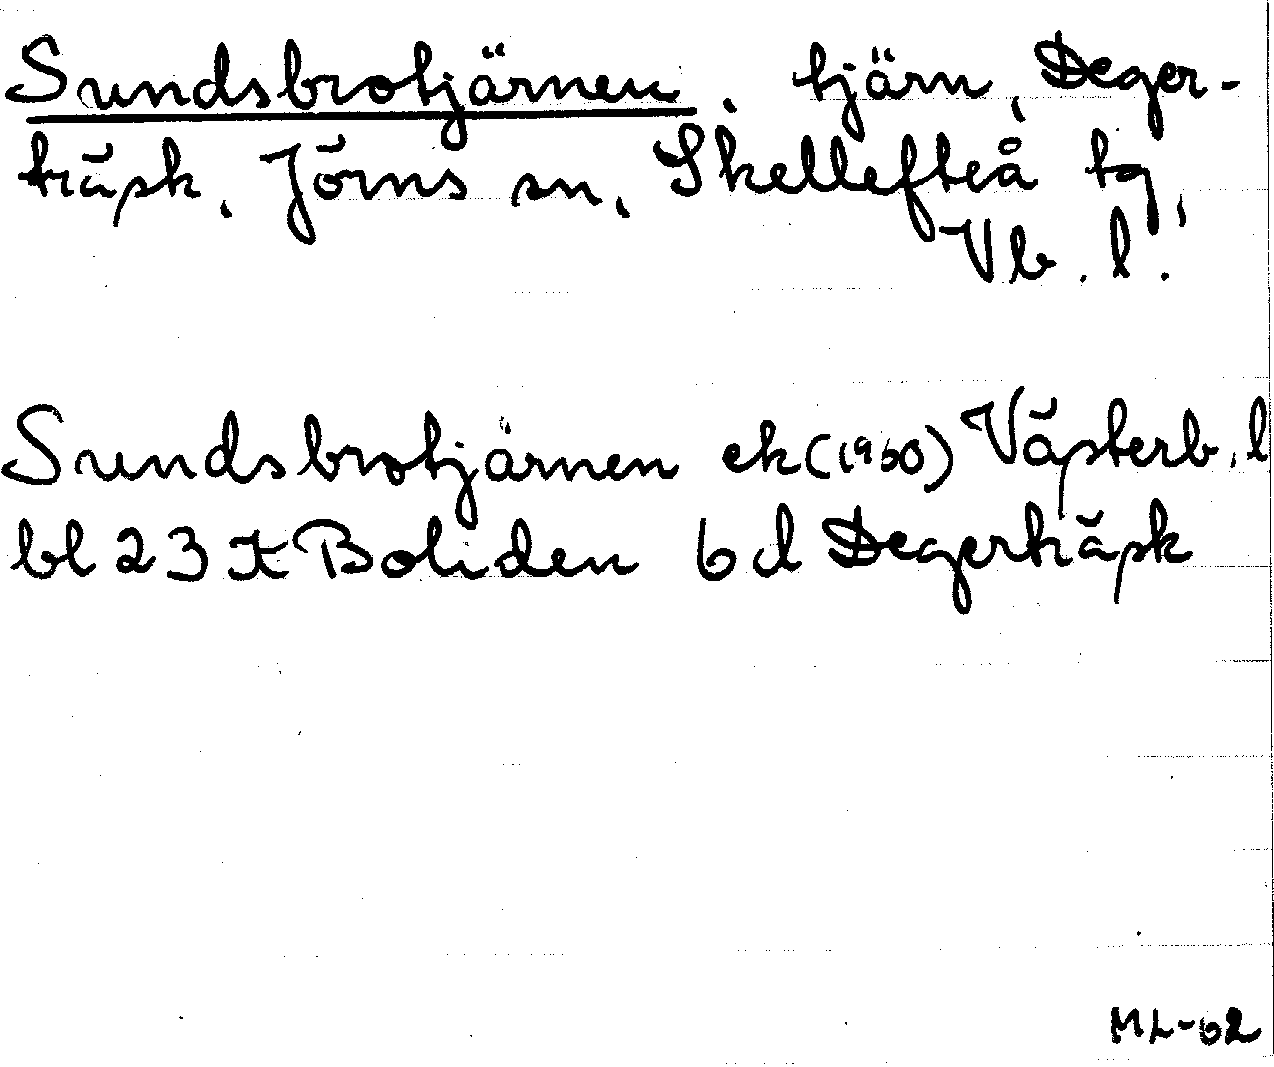 Sundsbrotjärnen, tjärn, Deger-
träsk, Jörns sn, Skellefteå tg,
Vb. l.
Sundsbrotjärnen ek (1960) Västerb. l
bl 23 I Boliden 6 d Degerträsk
ML-62